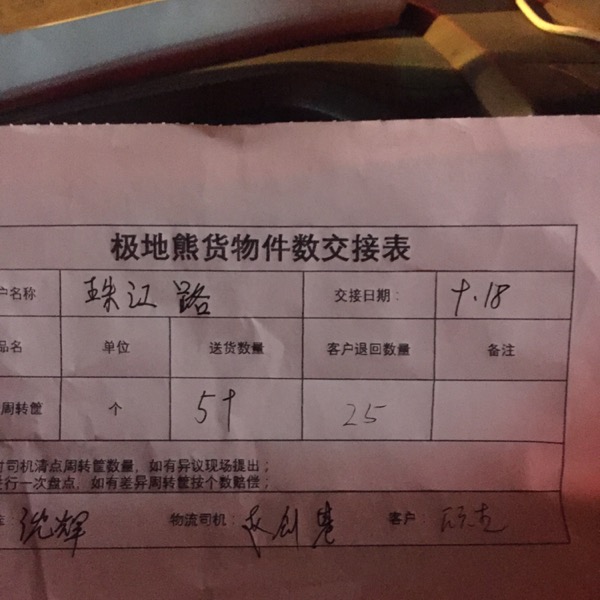 极地熊货物件数交接表
户名称 珠江路 交接日期： 9.18
品名 单位 送货数量 客户退回数量 备注
周转筐 个 59 25
时司机清点周转筐数量，如有异议现场提出；
行一次盘点，如有差异周转筐按个数赔偿；
沈辉 物流司机： 客户